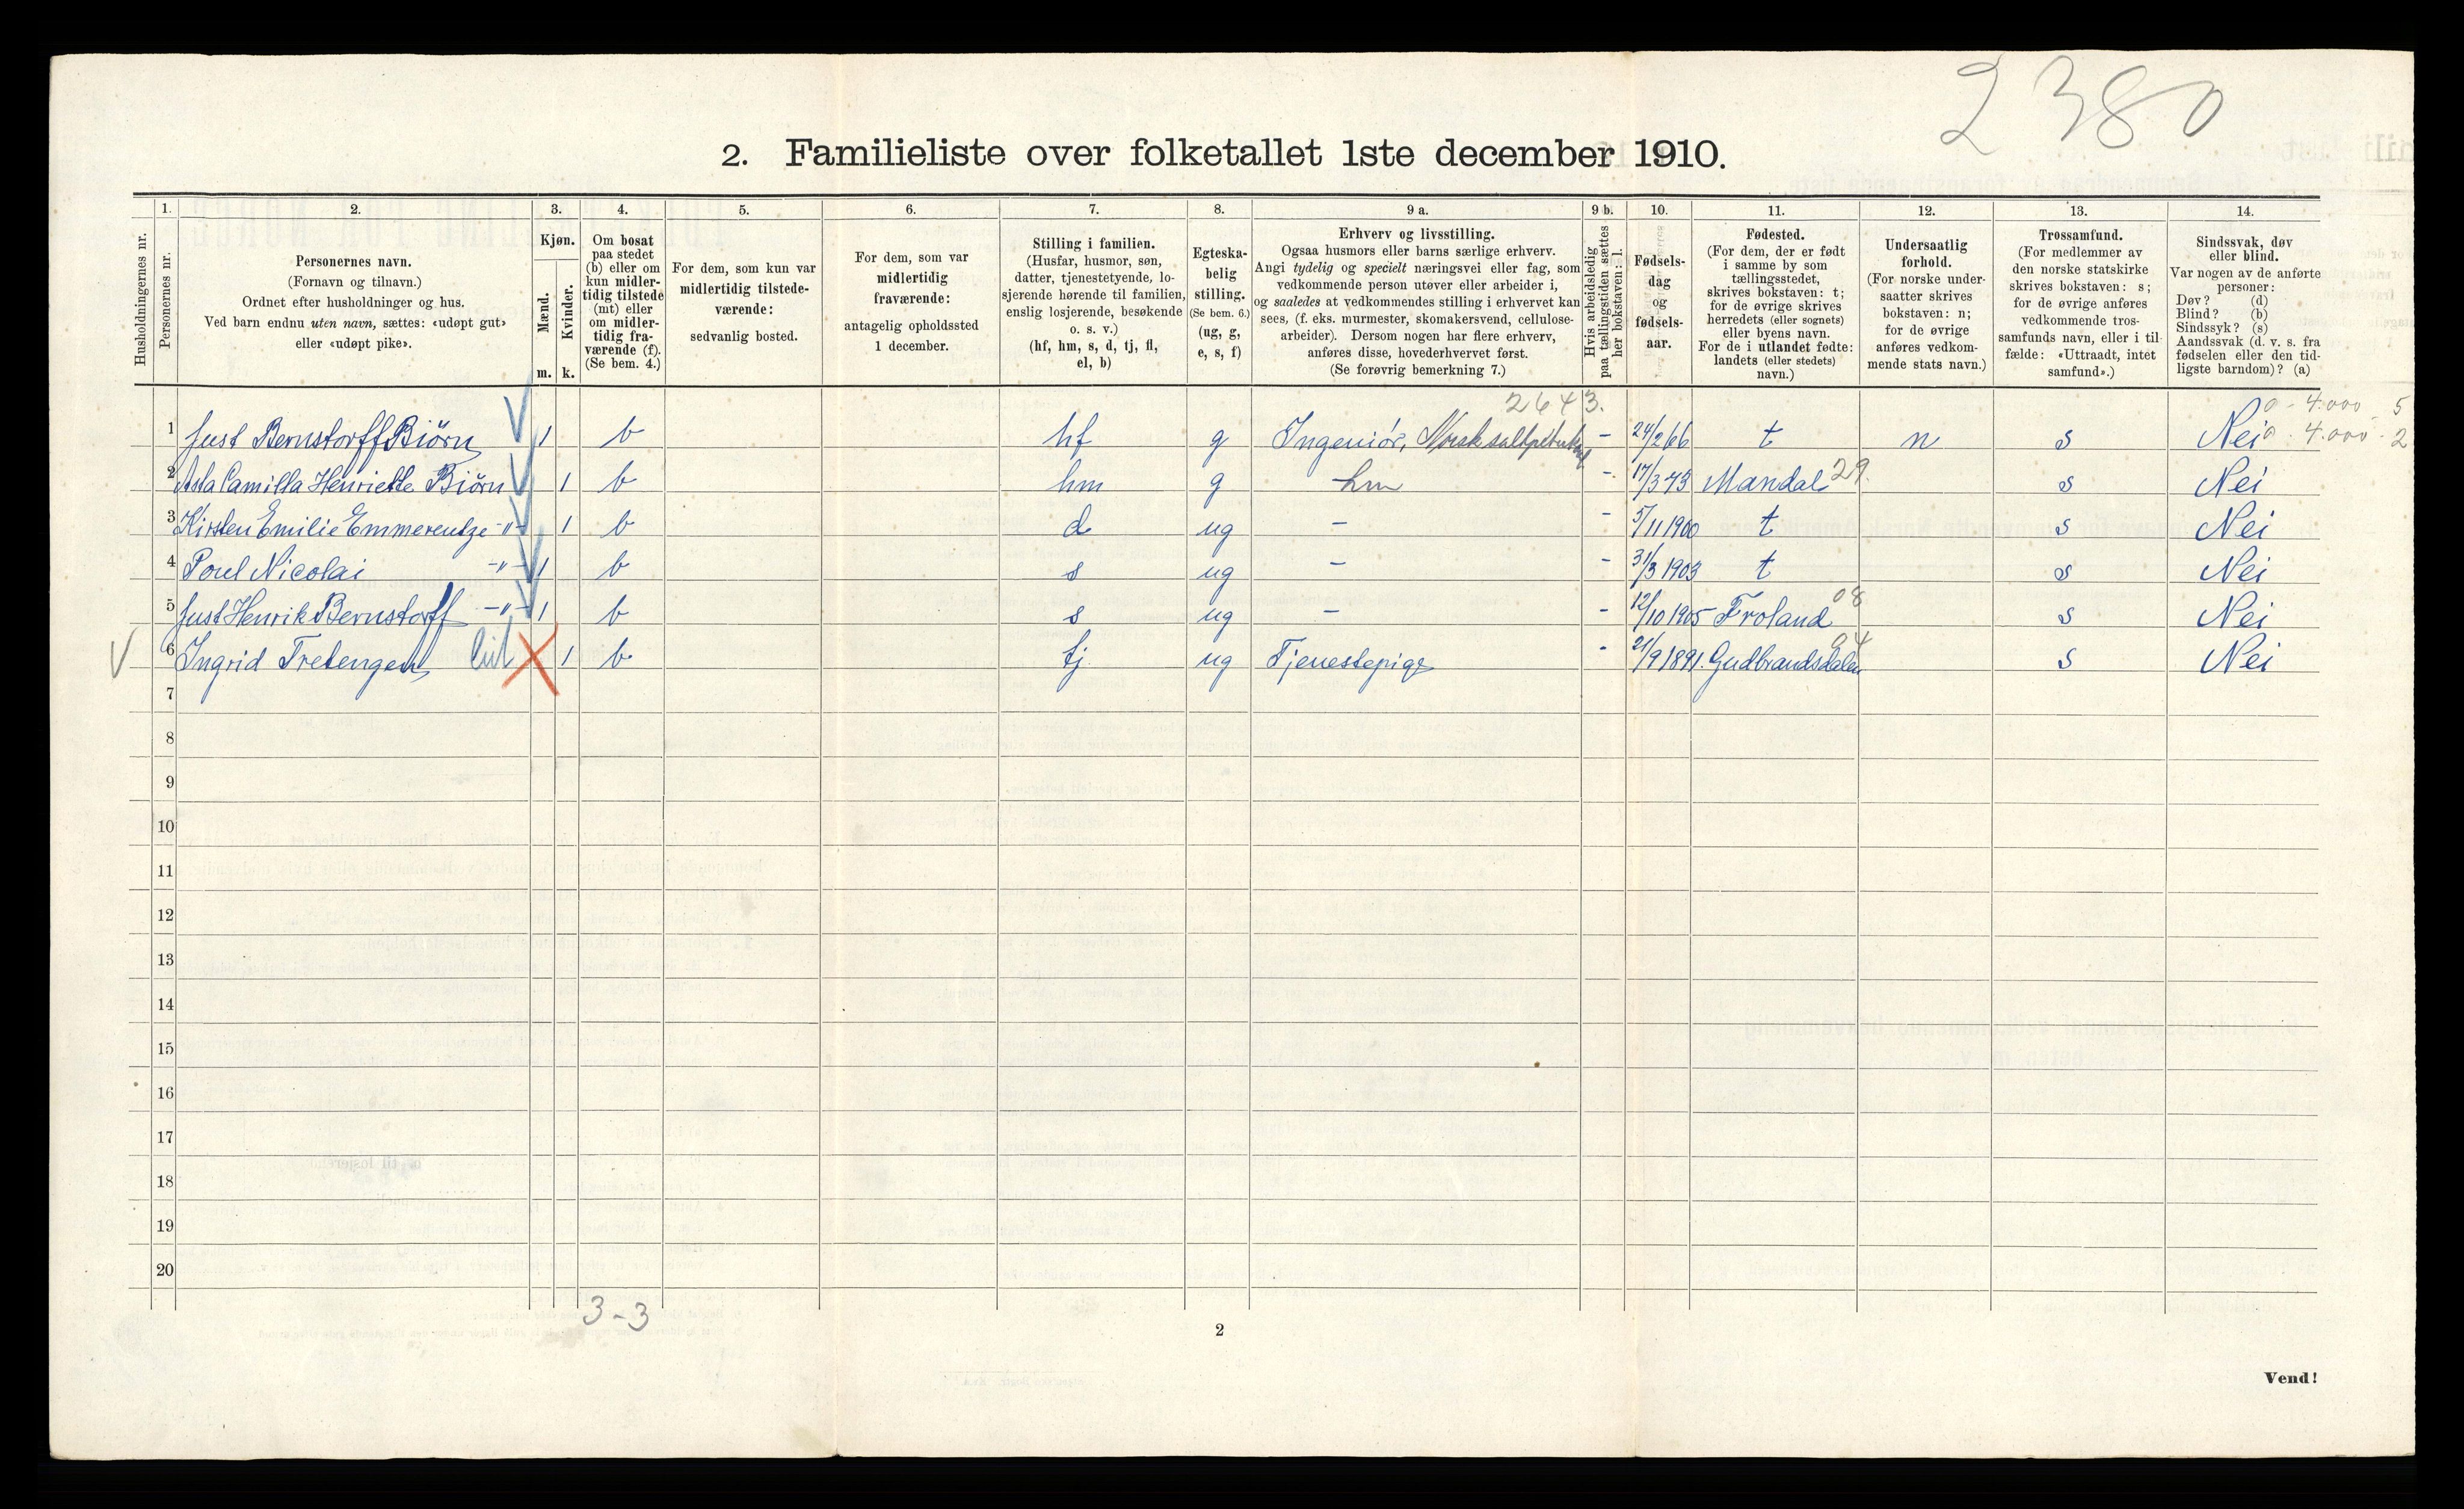 2380
2. Familieliste over folketallet 1ste december 1910.
Husholdningernes nr.
1.
Personernes nr.
2.
Personernes navn.
(Fornavn og tilnavn.)
Ordnet efter husholdninger og hus.
Ved barn endnu uten navn, sættes: «udøpt gut»
eller «udøpt pike».
3.
Kjøn.
Mænd.
Kvinder.
m. k.
4.
Om bosat
paa stedet
(b) eller om
kun midler-
tidig tilstede
(mt) eller
om midler-
tidig fra-
værende (f).
(Se bem. 4.)
5.
For dem, som kun var
midlertidig tilstede-
værende:
sedvanlig bosted.
6.
For dem, som var
midlertidig
fraværende:
antagelig opholdssted
1 december.
7.
Stilling i familien.
(Husfar, husmor, søn,
datter, tjenestetyende, lo-
sjerende hørende til familien,
enslig losjerende, besøkende
o. s. v.)
(hf, hm, s, d, tj, fl,
el, b)
8.
Egteska-
belig
stilling.
(Se bem. 6.)
(ug, g,
e, s, f)
9 a.
Erhverv og livsstilling.
Ogsaa husmors eller barns særlige erhverv.
Angi tydelig og specielt næringsvei eller fag, som
vedkommende person utøver eller arbeider i,
og saaledes at vedkommendes stilling i erhvervet kan
sees, (f. eks. murmester, skomakersvend, cellulose-
arbeider). Dersom nogen har flere erhverv,
anføres disse, hovederhvervet først.
(Se forøvrig bemerkning 7.)
9 b.
Hvis arbeidsledig
paa tællingstiden sættes
her bokstaven: l.
10.
Fødsels-
dag
og
fødsels-
aar.
11.
Fødested.
(For dem, der er født
i samme by som
tællingsstedet,
skrives bokstaven: t;
for de øvrige skrives
herredets (eller sognets)
eller byens navn.
For de i utlandet fødte:
landets (eller stedets)
navn.)
12.
Undersaatlig
forhold.
(For norske under-
saatter skrives
bokstaven: n;
for de øvrige
anføres vedkom-
mende stats navn.)
13.
Trossamfund.
(For medlemmer av
den norske statskirke
skrives bokstaven: s;
for de øvrige anføres
vedkommende tros-
samfunds navn, eller i til-
fælde: «Uttraadt, intet
samfund».)
14.
Sindssvak, døv
eller blind.
Var nogen av de anførte
personer:
Døv? (d)
Blind? (b)
Sindssyk? (s)
Aandssvak (d. v. s. fra
fødselen eller den tid-
ligste barndom)? (a)
2643. 4.000 5
1 Just Bernstorff Biörn 1 b hf g Ingeniör, Norsk - 24/2 66 t n s Nei 4.000 - 2
2 Asta Camilla Henriette Biörn 1 b hm g hm - 17/3 73 Mandal 29. s Nei
3 Kirsten Emilie Emmerentze -"- 1 b d ug - - 5/11 1900 t s Nei
4 Poul Nicolai -"- 1 b s ug - - 31/3 1903 t s Nei
5 Just Henrik Bernstorff -"- 1 b s ug - - 12/10 1905 Froland 08 s Nei
6 Ingrid Tretengen 1 b tj ug Tjenestepige - 21/9 1891. Gudbrandsdalen 04 s Nei
7
8
9
10
11
12
13
14
15
16
17
18
19
20
3-3
2
Vend!